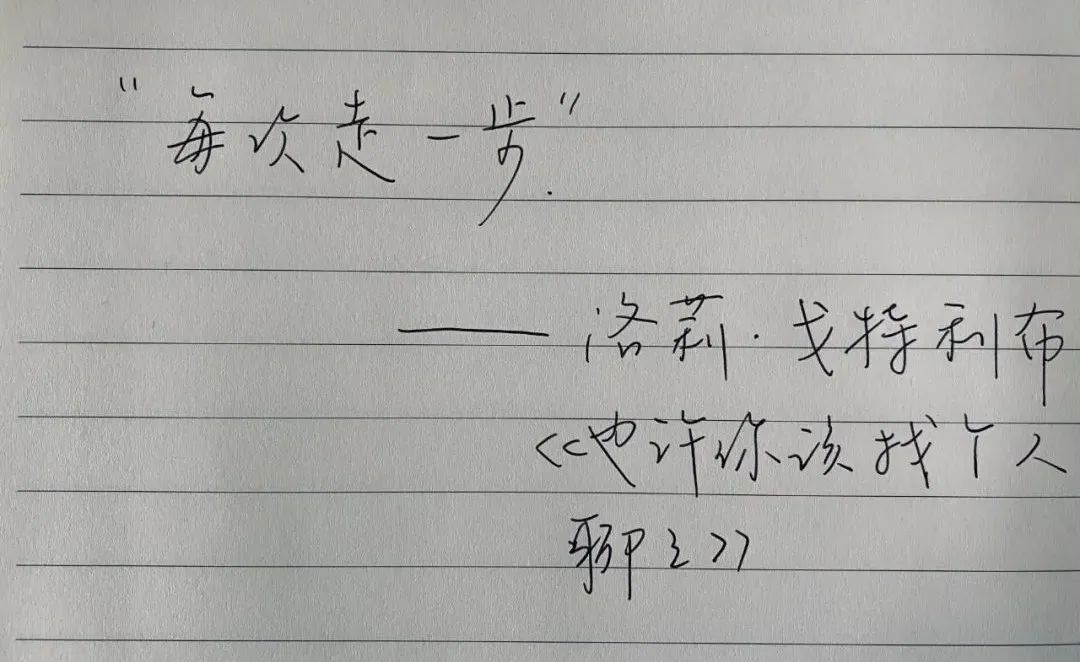 “每次走一步”.
——洛莉·戈特利布
《也许你该找个人
聊々》